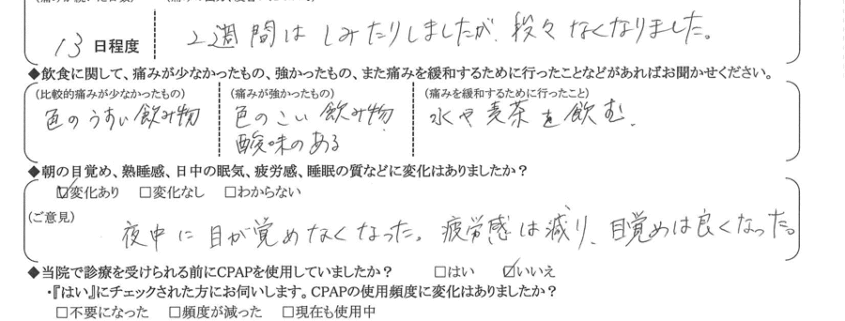 13日程度 2週間はしみたりしましたが、段々なくなりました。
◆飲食に関して、痛みが少なかったもの、強かったもの、また痛みを緩和するために行ったことなどがあればお聞かせください。
(比較的痛みが少なかったもの) (痛みが強かったもの) (痛みを緩和するために行ったこと)
色のうすい飲み物 色のこい飲み物 水や麦茶を飲む。
酸味のある
◆朝の目覚め、熟睡感、日中の眠気、疲労感、睡眠の質などに変化はありましたか?
☑変化あり □変化なし □わからない
(ご意見)
夜中に目が覚めなくなった。疲労感は減り、目覚めは良くなった。
◆当院で診療を受けられる前にCPAPを使用していましたか? □はい ☑いいえ
・『はい』にチェックされた方にお伺いします。CPAPの使用頻度に変化はありましたか?
□不要になった □頻度が減った □現在も使用中